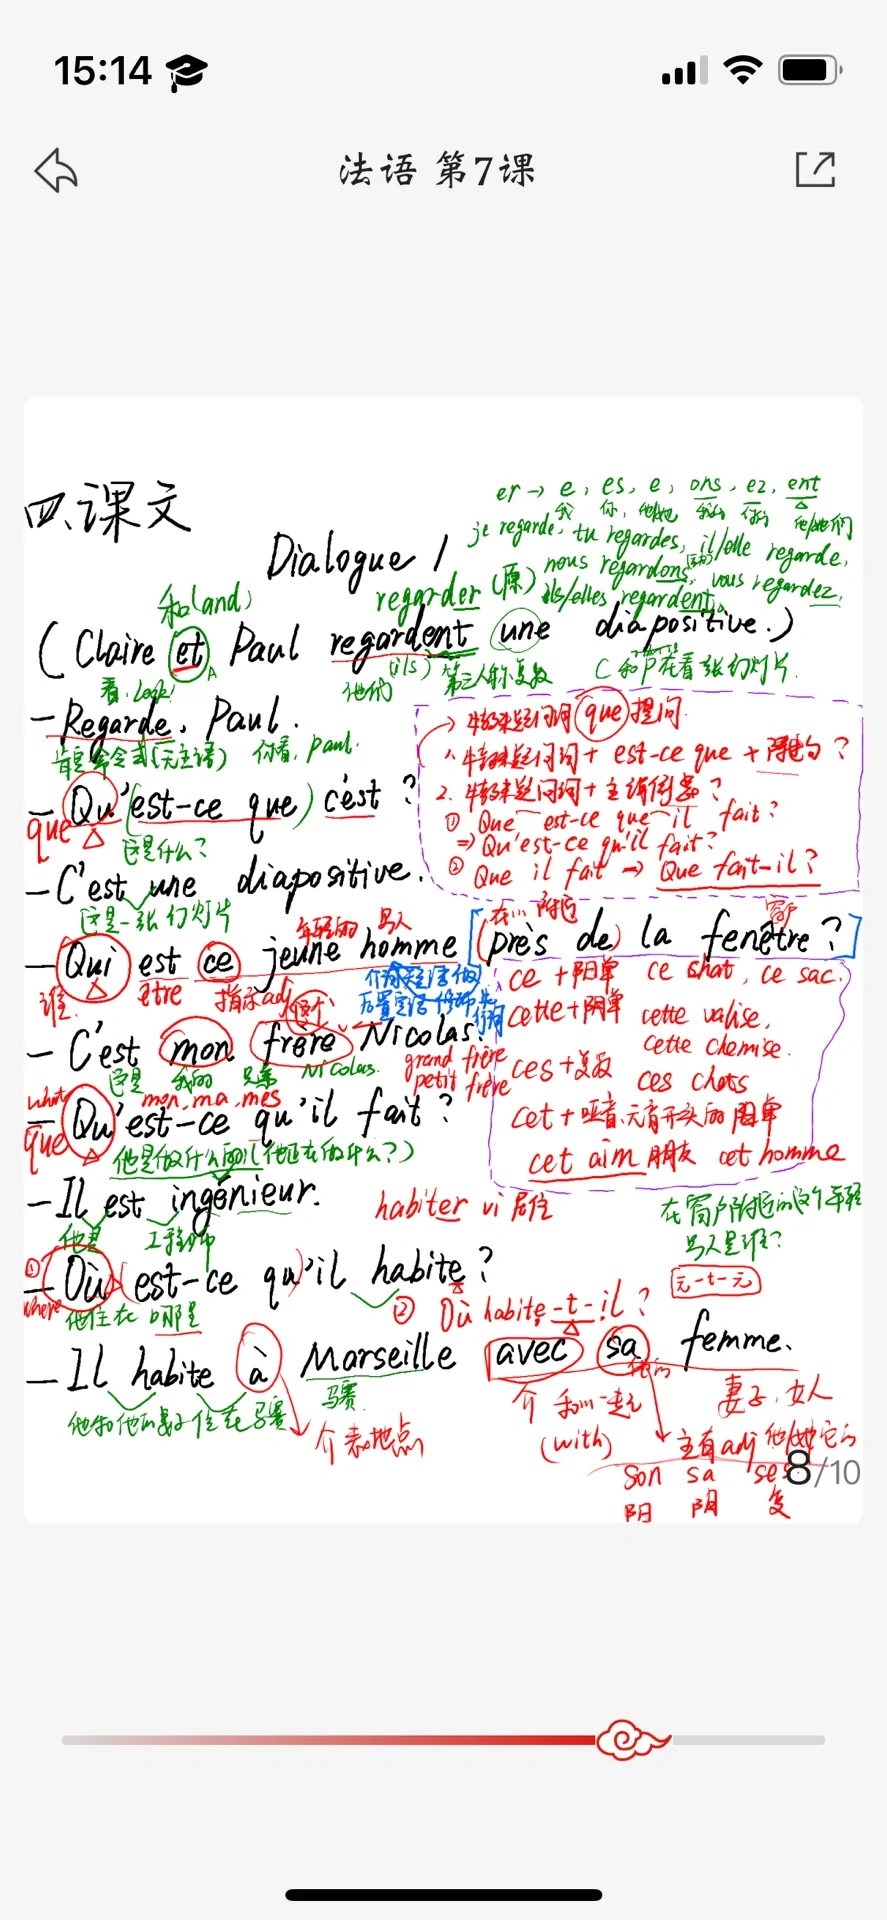 15:14
法语 第7课
四.课文
er → e, es, e, ons, ez, ent
我 你 他/她 我们 你们 他/她们
je regarde, tu regardes, il/elle regarde,
nous regardons, vous regardez,
ils/elles regardent.
Dialogue 1
和(and) regarder (原)
(Claire et Paul regardent une diapositive.)
看, look! 他们 (ils) 第三人称复数 C和P在看张幻灯片.
- Regarde, Paul.
肯定命令式(无主语) 你看, Paul.
→ 特殊疑问词 que 提问.
1. 特殊疑问词 + est-ce que + 陈述句?
2. 特殊疑问词 + 主谓倒装?
① Que est-ce que il fait?
⇒ Qu'est-ce qu'il fait?
② Que il fait → Que fait-il?
- Qu'est-ce que c'est ?
que 这是什么?
- C'est une diapositive.
这是一张幻灯片
年轻的 男人 在…附近 窗户
- Qui est ce jeune homme (près de) la fenêtre ?
谁. être 指示adj 这个
ce + 阳单 ce chat, ce sac.
cette + 阴单 cette valise,
cette chemise.
ces + 复数 ces chats
cet + 哑音,元音开头的阳单
cet ami 朋友 cet homme
- C'est mon frère Nicolas.
这是 我的 兄弟 Nicolas.
grand frère
petit frère
what mon, ma, mes
- Qu'est-ce qu'il fait ?
que 他是做什么的(他正在做什么?)
- Il est ingénieur.
他是 工程师
habiter vi 居住
在窗户附近的这个年轻
男人是谁?
- ① Où est-ce qu'il habite ?
where 他住在哪里
② Où habite-t-il ?
元-t-元
- Il habite à Marseille avec sa femme.
马赛 他的
他和他的妻子住在马赛 介 表地点
介 和…一起 妻子, 女人
(with) 主有adj 他/她/它的
son sa ses
阳 阴 复
8/10